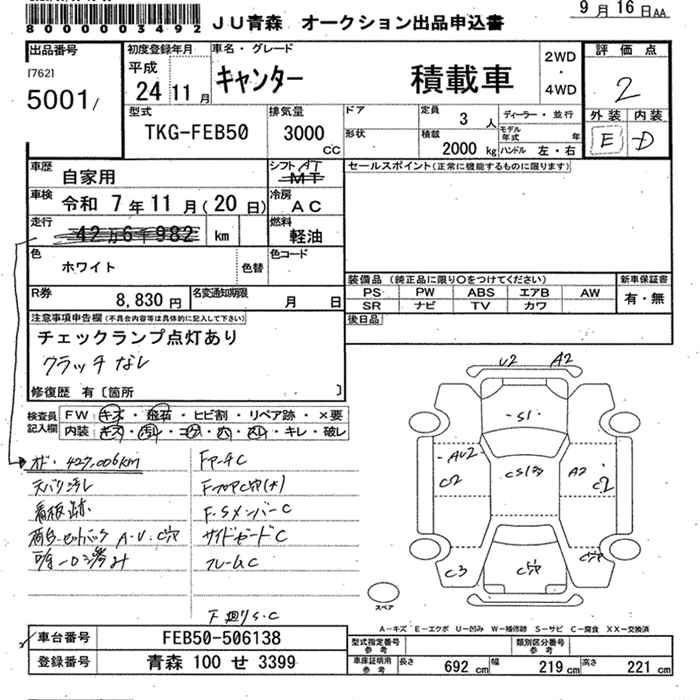 8000003492
JU青森 オークション出品申込書
9月16日AA
出品番号
[762]
5001/
初度登録年月
平成
24 11月
車名・グレード
キャンター 積載車
2WD
・
4WD
評価点
2
外装 内装
E D
型式
TKG-FEB50
排気量
3000
cc
ドア
形状
定員
3 人
積載
2000 kg
ディーラー・並行
モデル年式 年
ハンドル 左・右
車歴
自家用
シフト AT
MT
車検
令和 7年11月(20日)
冷房
AC
走行
42万6千982 km
燃料
軽油
色
ホワイト
色替
色コード
R券
8,830円
名変通知期限
月 日
セールスポイント(正常に機能するものに限ります)
装備品(純正品に限り○をつけてください)
PS PW ABS エアB AW
SR ナビ TV カワ
新車保証書
有・無
後日品
注意事項申告欄(不具合内容等は具体的に記入して下さい)
チェックランプ点灯あり
クラッチなし
修復歴 有〔箇所 〕
検査員
記入欄
FW キズ・飛石・ヒビ割・リペア跡・×要
内装 キズ・汚レ・コゲ・穴・スレ・キレ・破レ
427,006km
天バリ汚レ
看板跡
FアーチC
F.SメンバーC
サイドシードC
フレームC
U2 A2
S1
AU2
C2
A2
C2
C3
C穴
スペア
A-キズ E-エクボ U-凹み W-補修跡 S-サビ C-腐食 XX-交換済
車台番号
FEB50-506138
登録番号
青森 100 せ 3399
型式指定番号
参考
類別区分番号
参考
車庫証明用
参考
長さ 692 cm 幅 219 cm 高さ 221 cm